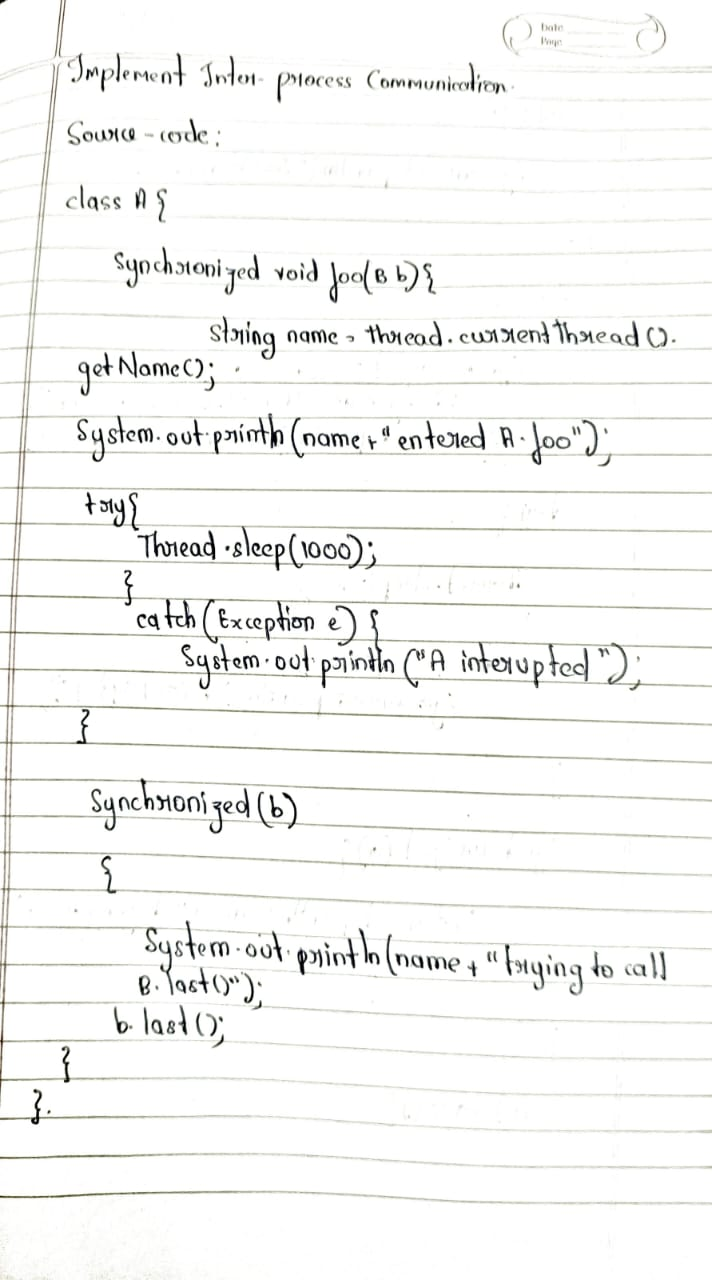 Date
Page
Implement Inter-process Communication.
Source-code:
class A {
Synchronized void foo(B b){
string name = thread.currentThread().
getName();
System.out.println(name+" entered A.foo");
try{
Thread.sleep(1000);
}
catch(Exception e) {
System.out.println("A interupted");
}
Synchronized(b)
{
System.out.println(name+"trying to call
B.last()");
b.last();
}
}.